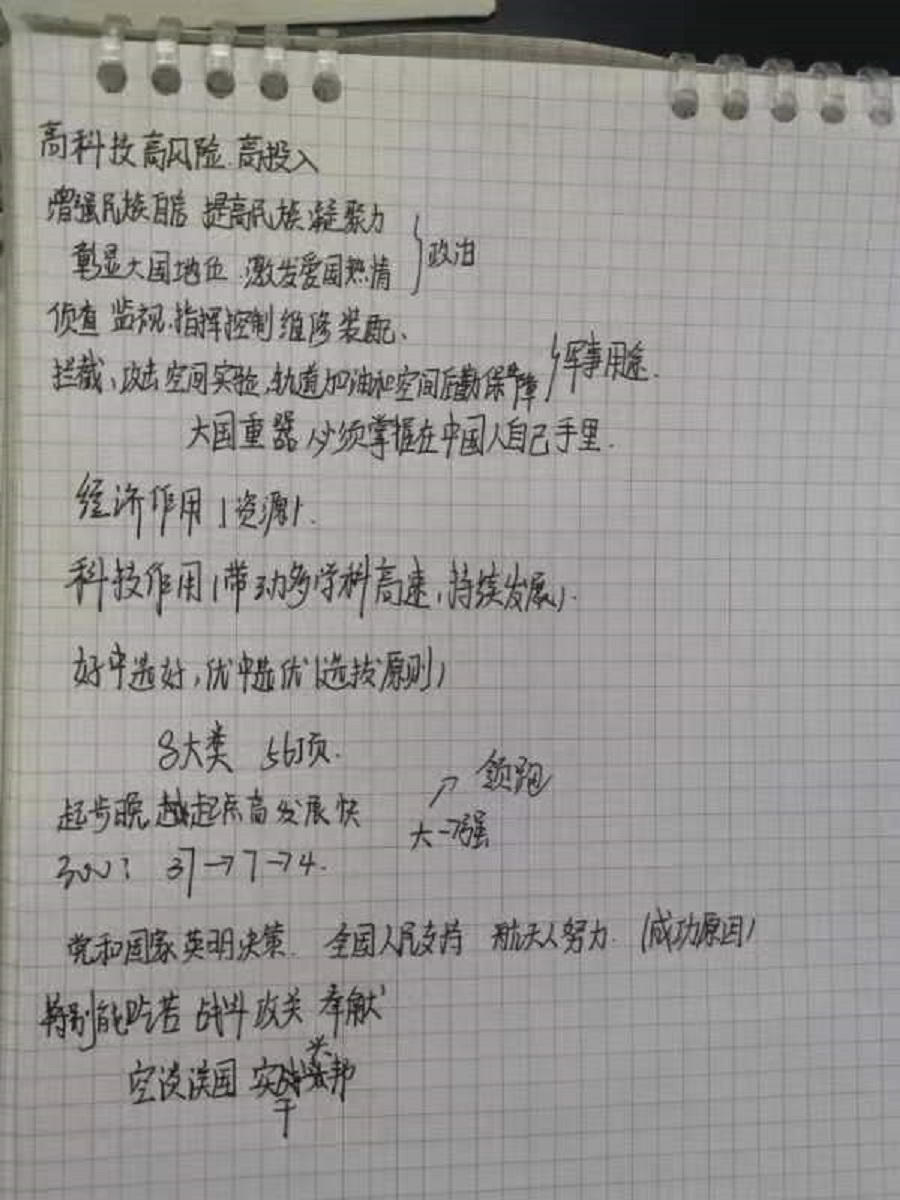 高科技高风险 高投入
增强民族自信 提高民族凝聚力
彰显大国地位 激发爱国热情
}政治
侦查 监视、指挥控制维修装配、
拦截、攻击空间实验,轨道加油和空间后勤保障
}军事用途.
大国重器必须掌握在中国人自己手里.
经济作用(资源).
科技作用(带动多学科高速,持续发展).
好中选好,优中选优(选拔原则)
8大类 56顶.
↗ 领跑
起步晚 起点高 发展快
大→强
37→7→4.
党和国家英明决策. 全国人民支持 航天人努力. (成功原因)
特别能吃苦 战斗 攻关 奉献
空谈误国 实干兴邦